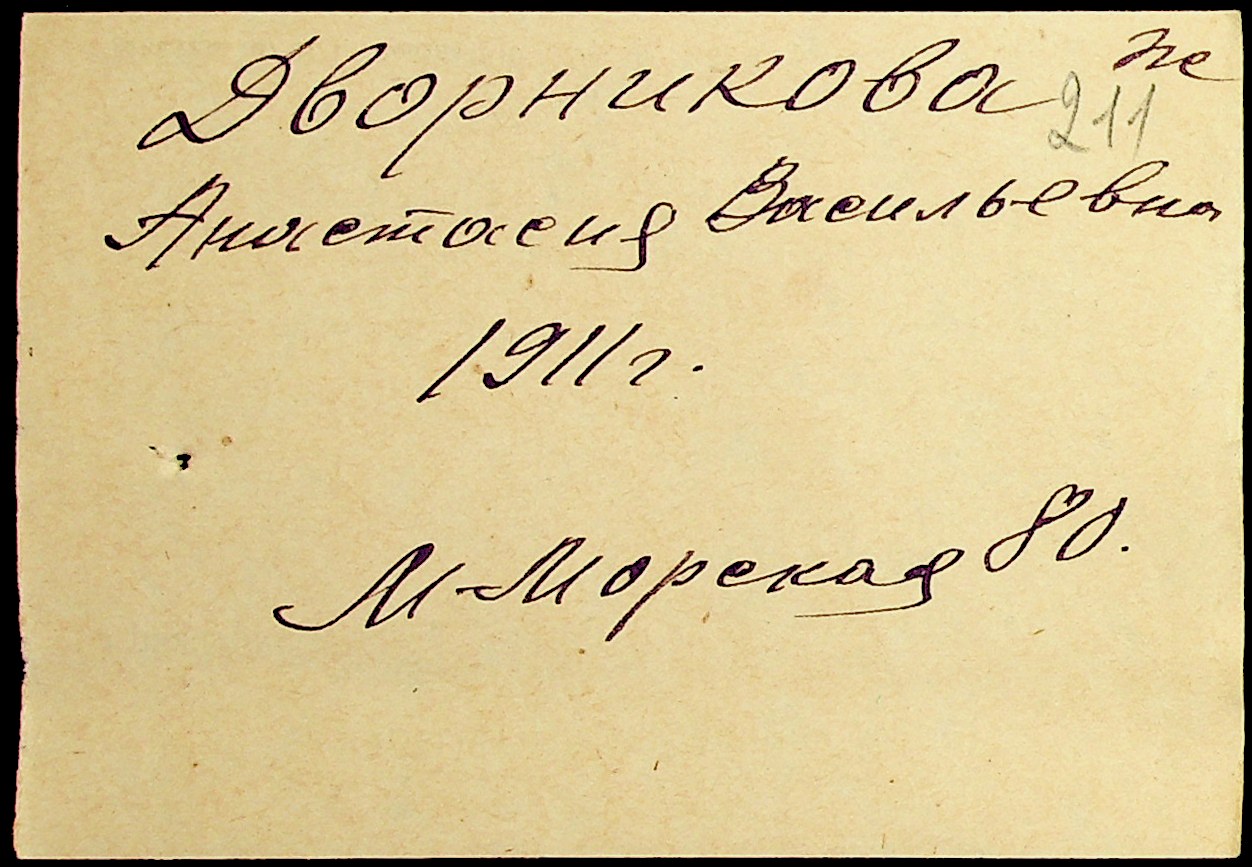 Дворникова
же
211
Анастасия Васильевна
1911г.
М-Морская 80.